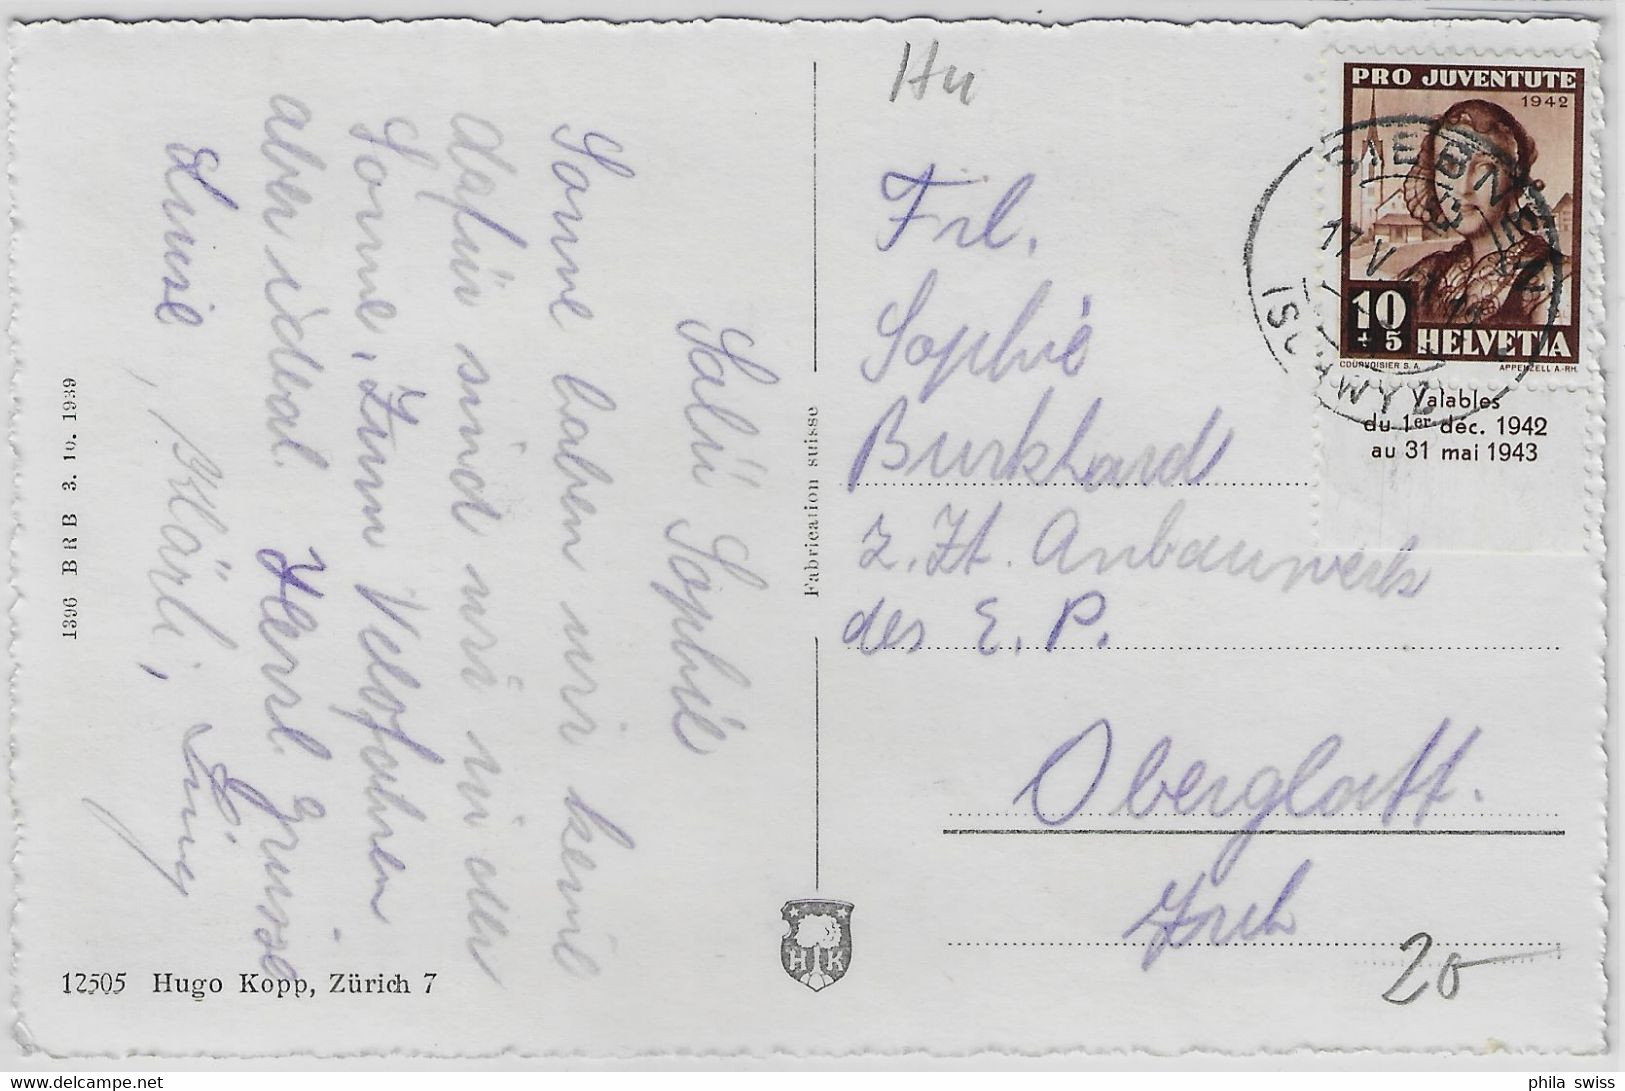 Salü Sophie
Sonne haben wir keine
dafür sind wir in der
Sonne, Zum Velofahren
aber ideal. Herzl. Grüsse
Luise, Klärli,
1396 B R B 3. 10. 1939
12505 Hugo Kopp, Zürich 7
Fabrication suisse
H K
Frl.
Sophie
Burkhard
z. Zt. Anbauwerk
des E. P.
Oberglatt.
Zrch
20
PRO JUVENTUTE
1942
10
+5
HELVETIA
COURVOISIER S.A.
APPENZELL A.-RH.
Valables
du 1er déc. 1942
au 31 mai 1943
SIEBNEN
17 V
(SCHWYZ)
phila swiss